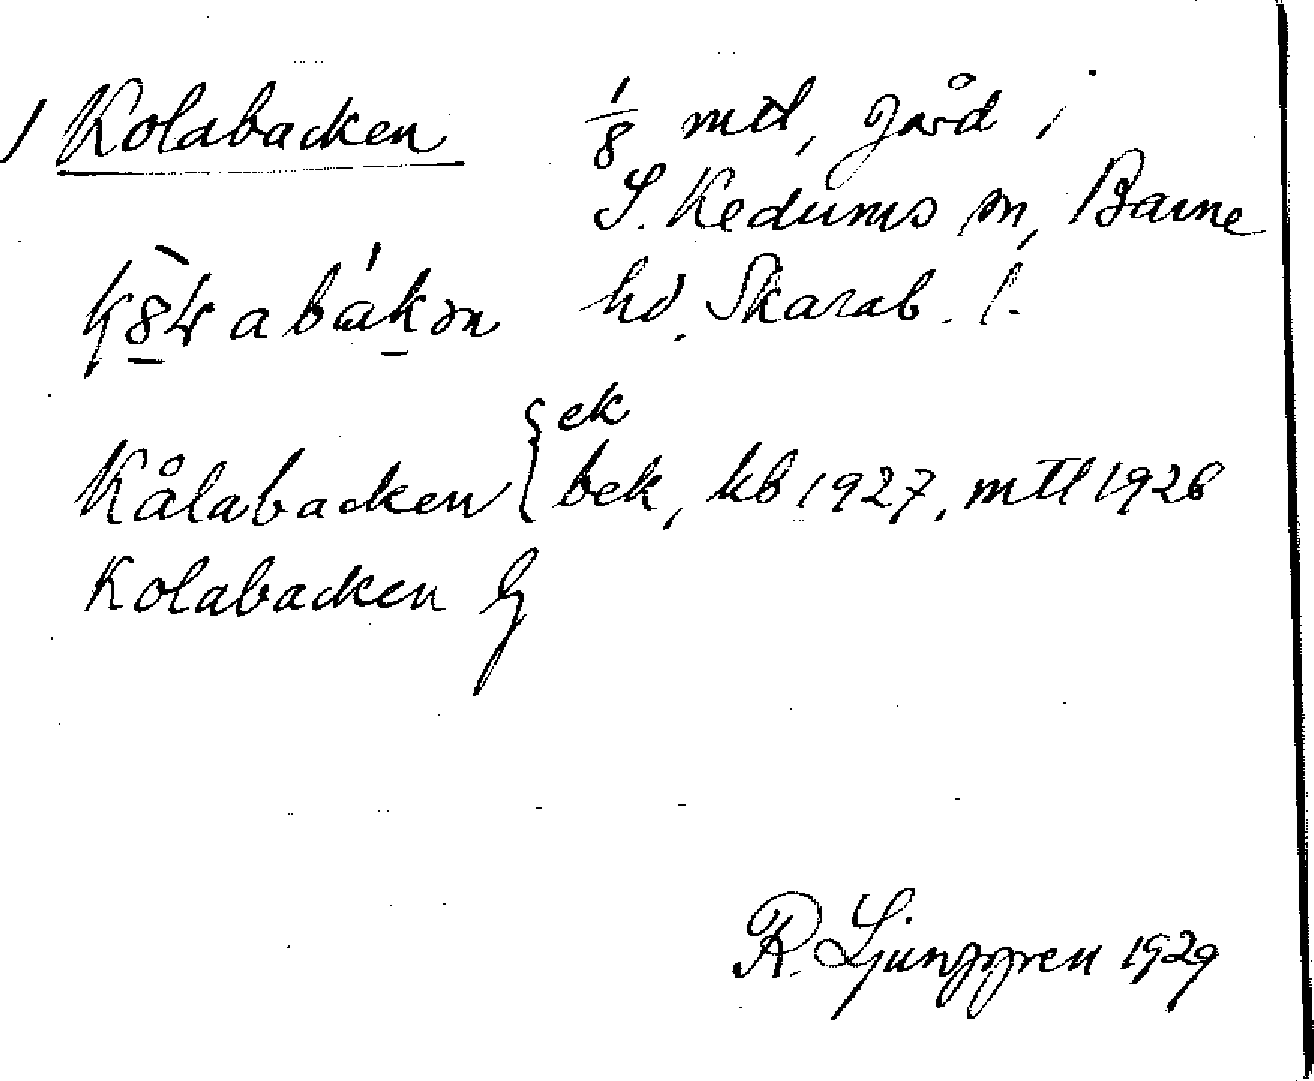 / Kolabacken 1/8 mtl, gård i
S. Kedums sn, Barne
hd. Skarab. l.
Kålabacken { ek
bek, kb 1927, mtl 1926
Kolabacken
R. Ljunggren 1929